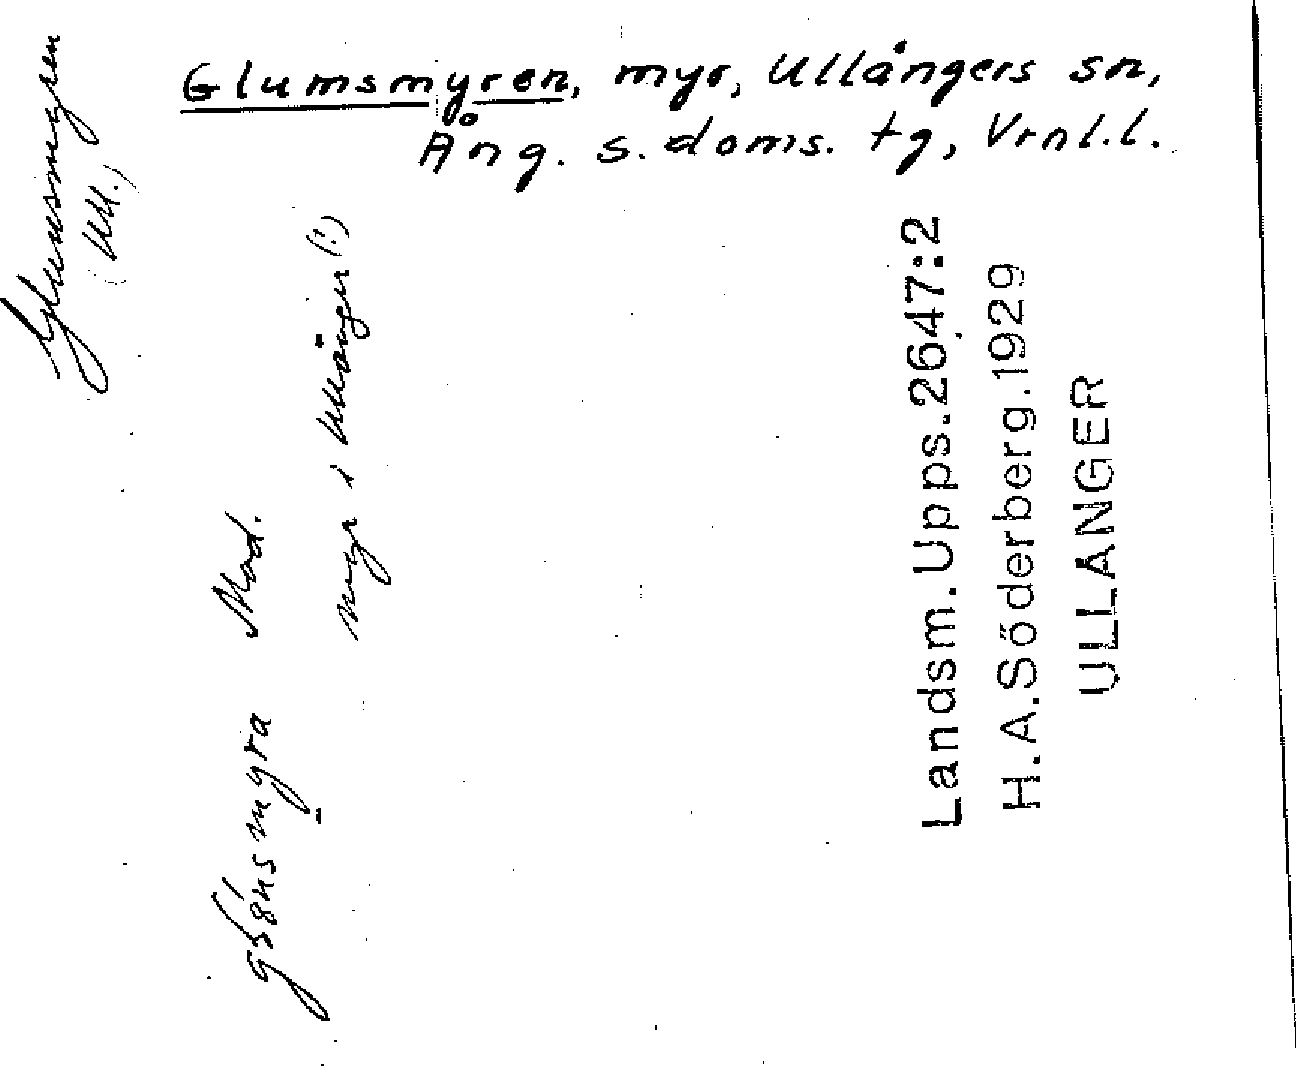 Glumsmyren, myr, Ullångers sn,
Ång. s. doms. tg, Vrnl.l.
Glumsmyren
(Ull.)
Mad.
myr i Ullånger (!)
Landsm. Upps. 2647:2
H. A. Söderberg. 1929
ULLÅNGER